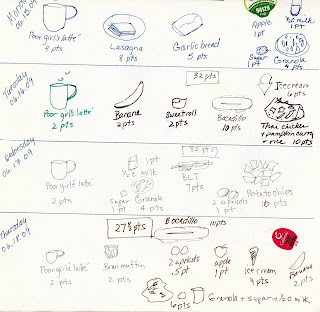 Monday
06.15.09
Poor girl's latte
4 pts
Lasagna
8 pts
Garlic bread
5 pts
Apple
1 pt
1/2 milk
1 pt
Sugar
1 pt
Granola
4 pts
Tuesday
06.16.09
Poor girl's latte
2 pts
Banana
2 pts
Sweet roll
2 pts
32 pts
Bocadillo
10 pts
Ice cream
6 pts
Thai chicken
+ pumpkin curry
+ rice 10 pts
Wednesday
06.17.09
Poor girl's latte
2 pts
1 pt
1/2 c milk
Sugar
1 pt
Granola
4 pts
32 pts
BLT
7 pts
2 apricots
1 pt
Potato chips
10 pts
Thursday
06.18.09
27 1/2 pts
Bocadillo
10 pts
Poor girl's latte
2 pts
Bran muffin
2 pts
2 apricots
.5 pt
apple
1 pt
Ice cream
4 pts
Banana
2 pts
6 pts
1 pt
Granola + sugar + 1/2 c milk